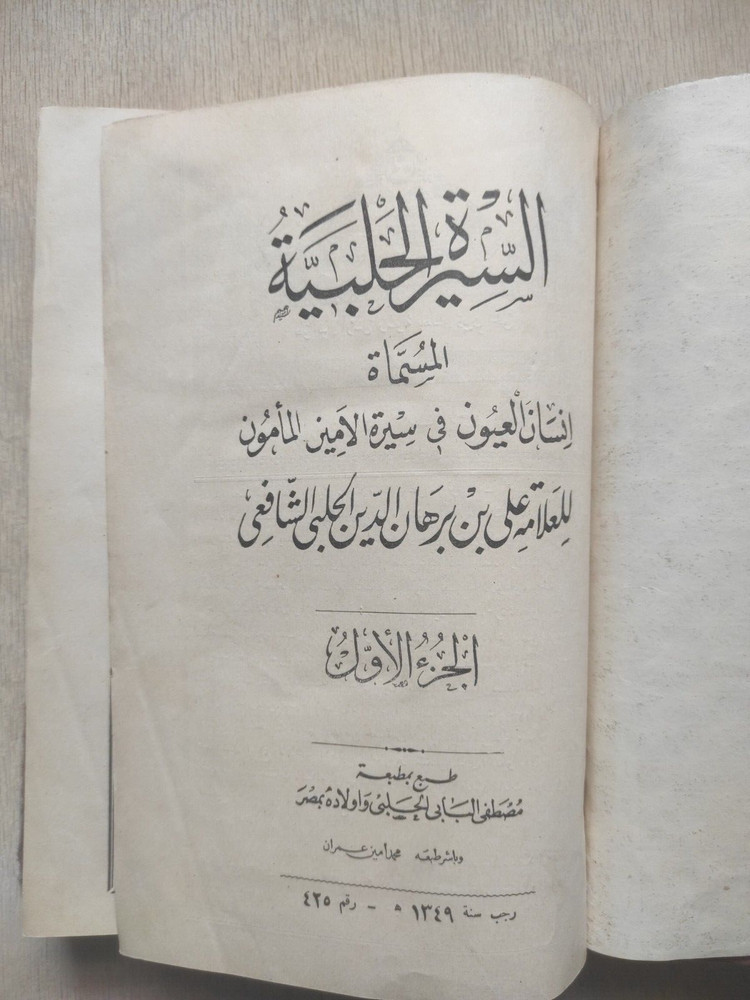 السِّيرة الحَلَبيَّةُ
المُسَمَّاة
إنسَانَ الْعيُون في سِيرَة الاَمِين المَأمُون
لِلعَلاّمة علي بن بَرهَان الدّين الحلبي الشّافِعى
الجُزءُ الأوَّلُ
طبع بمطبعة
مُصْطَفى البَابى الحَلَبيّ وَاولَادهُ بمصْرَ
وباشر طبعه محمد أمين عمران
رجب سنة ١٣٤٩ ھ - رقم ٤٢٥